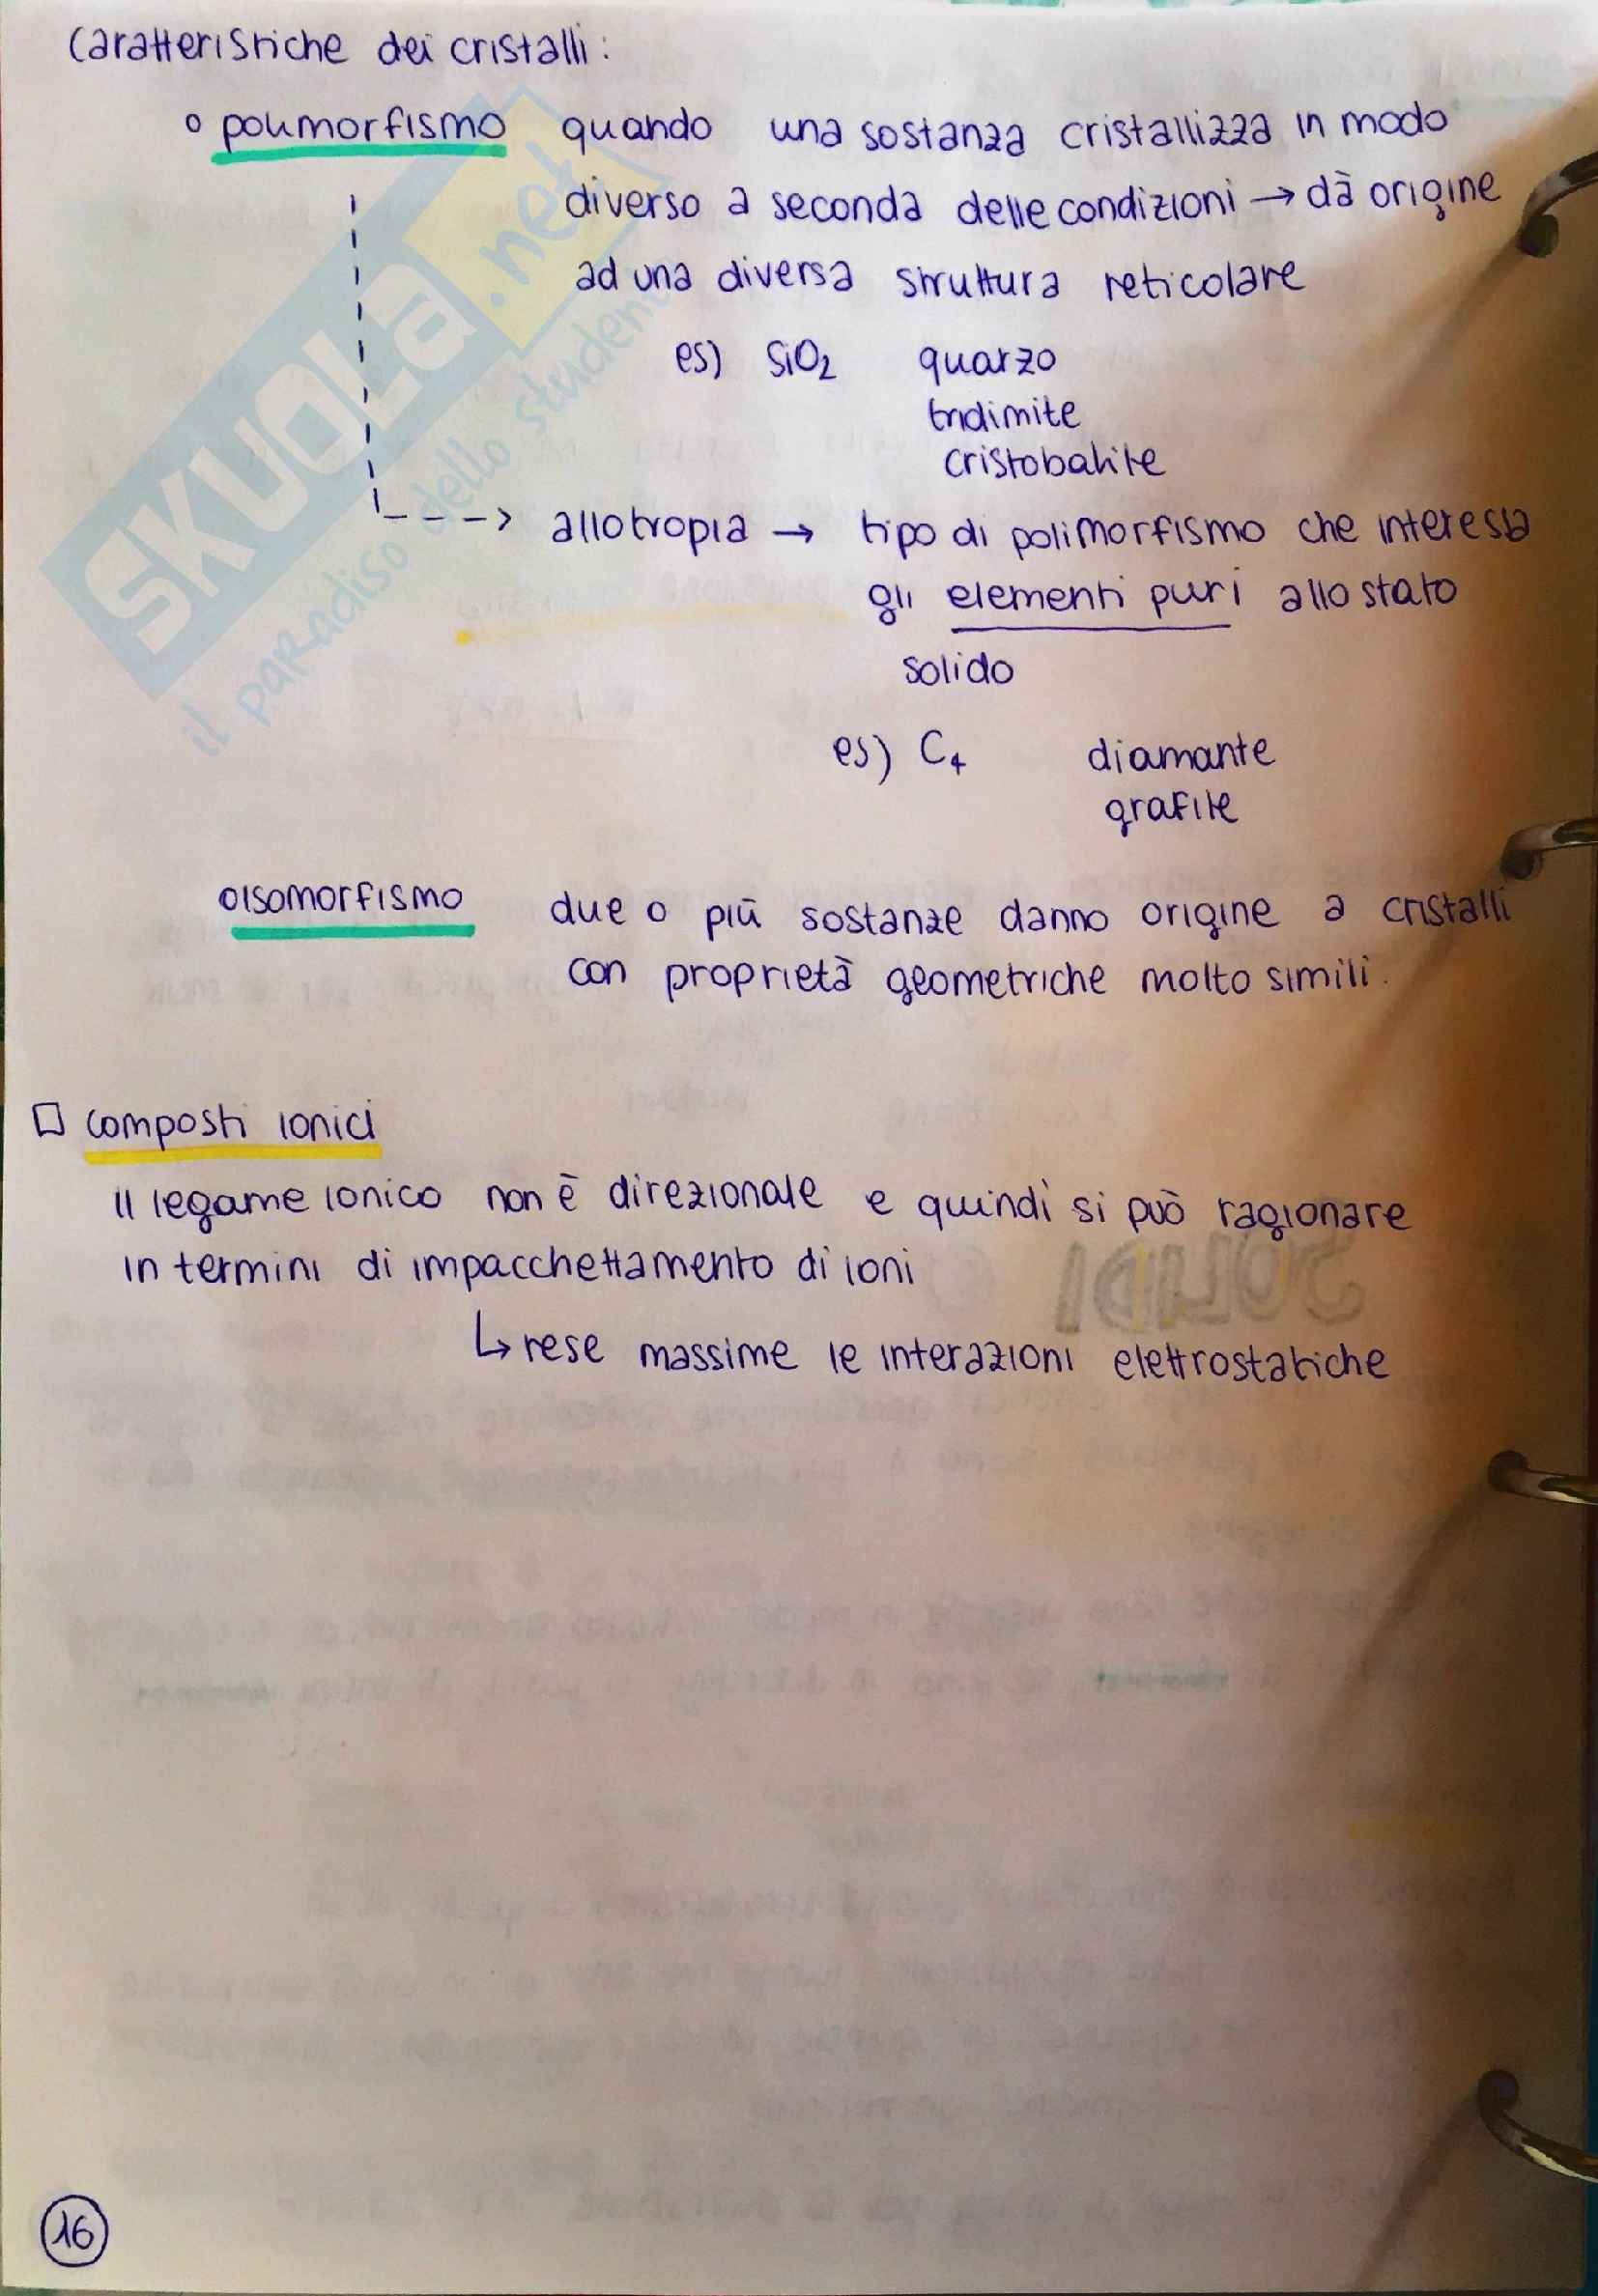 Caratteristiche dei cristalli:
o polimorfismo quando una sostanza cristallizza in modo
diverso a seconda delle condizioni → dà origine
ad una diversa struttura reticolare
es) SiO₂ quarzo
tridimite
cristobalite
---> allotropia → tipo di polimorfismo che interessa
gli elementi puri allo stato
solido
es) C₄ diamante
grafite
o isomorfismo due o più sostanze danno origine a cristalli
con proprietà geometriche molto simili.
□ composti ionici
Il legame ionico non è direzionale e quindi si può ragionare
in termini di impacchettamento di ioni
↳ rese massime le interazioni elettrostatiche
16
SKUOLA.net
il paradiso dello studente
SOLIDI